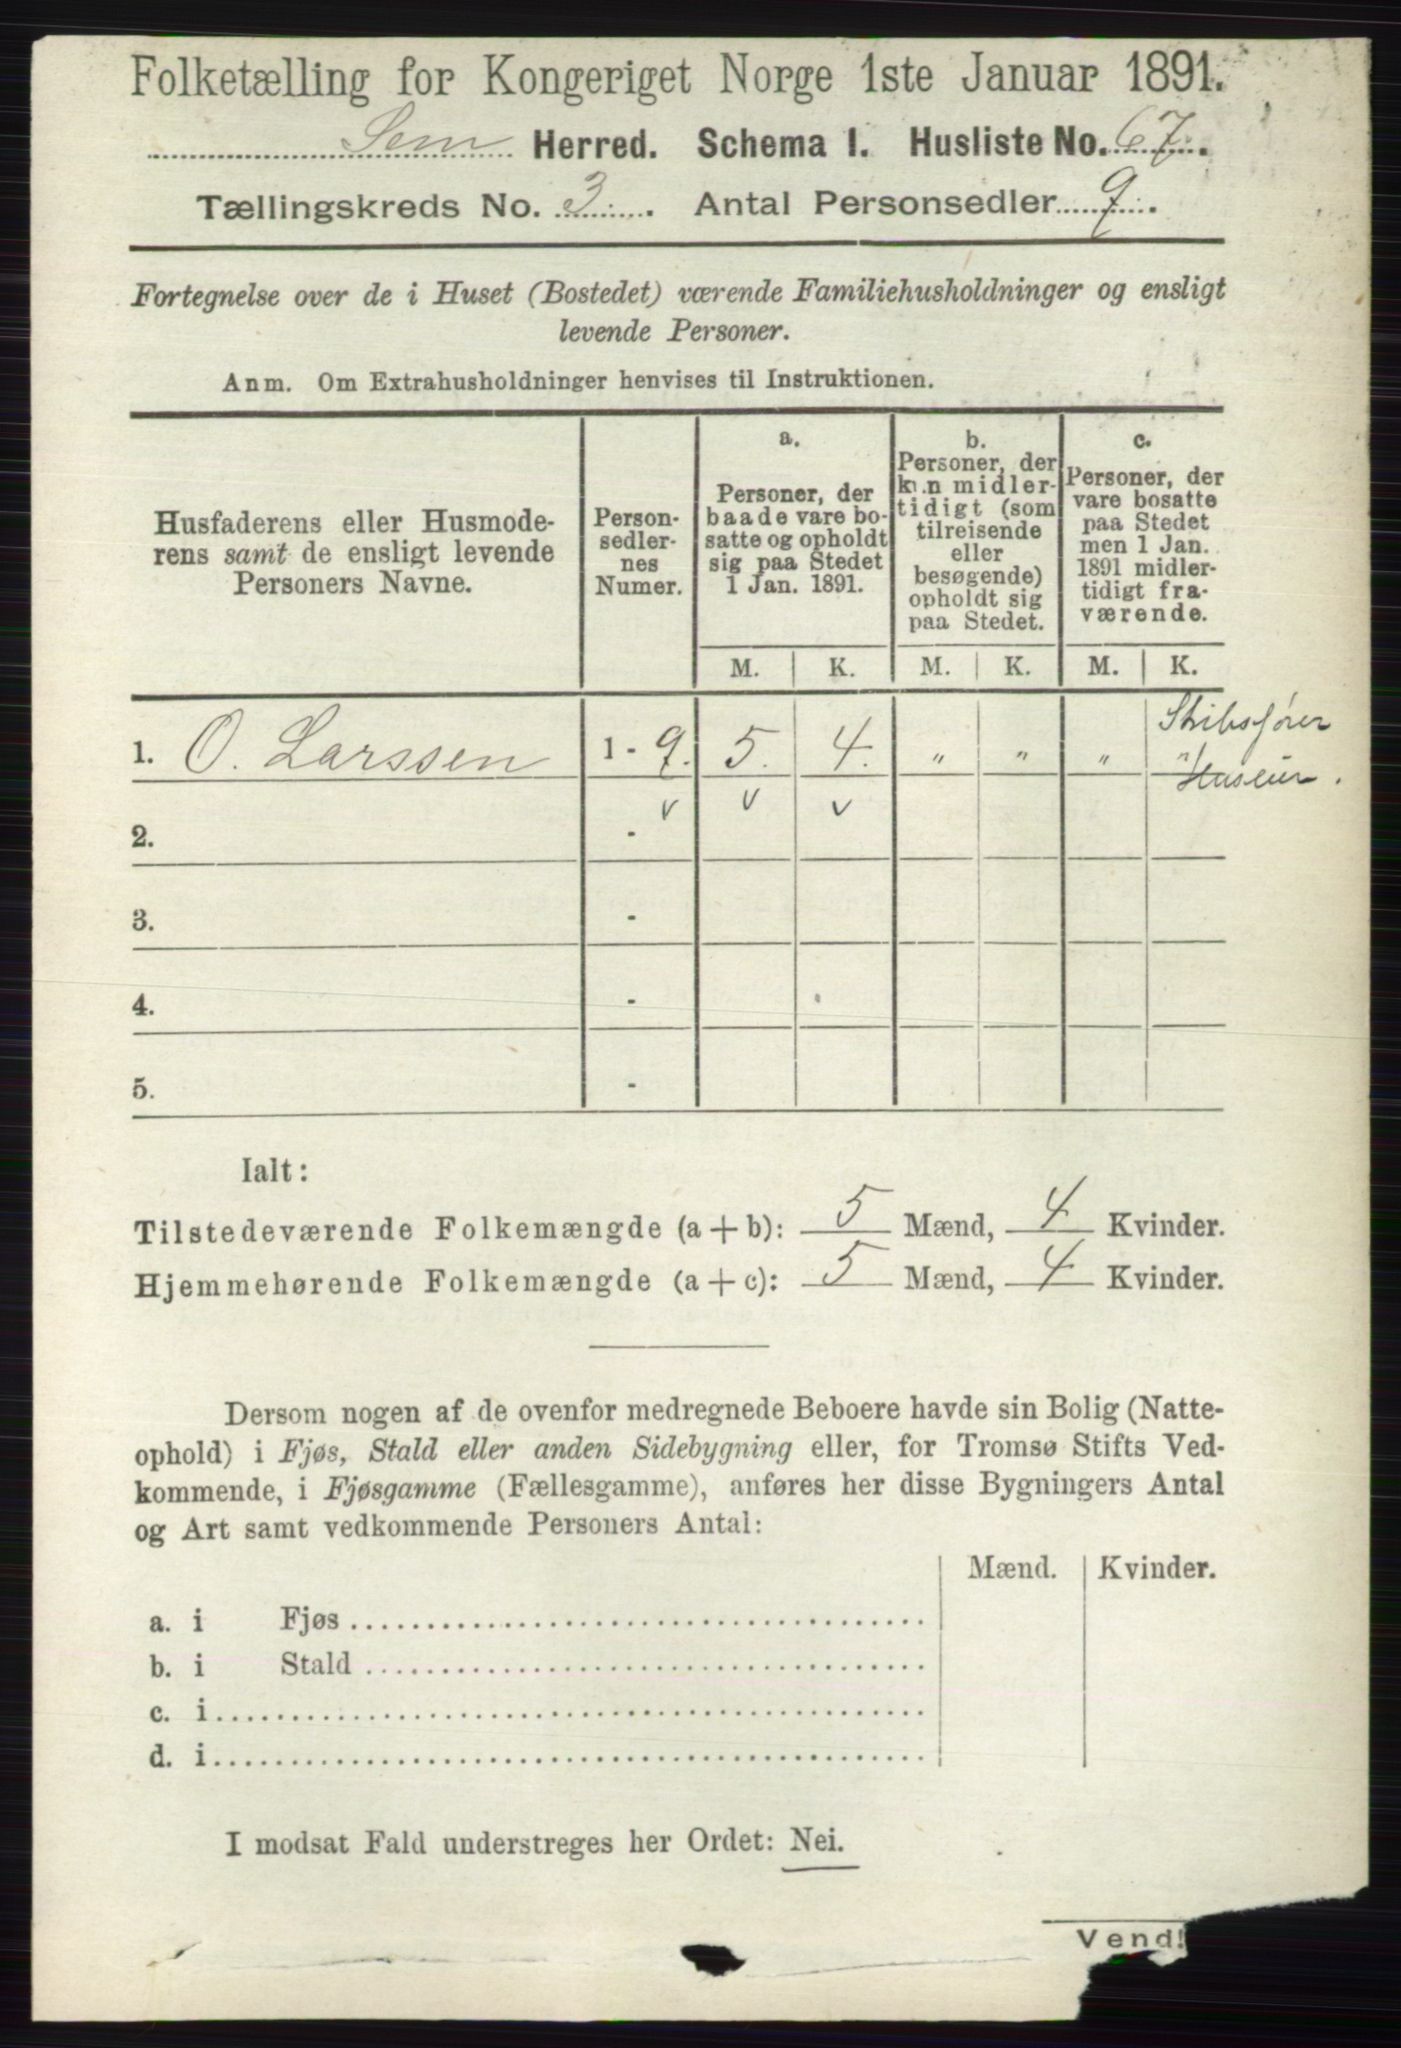 Folketælling for Kongeriget Norge 1ste Januar 1891.
Sem Herred. Schema I. Husliste No. 67.
Tællingskreds No. 3. Antal Personsedler 9.
Fortegnelse over de i Huset (Bostedet) værende Familiehusholdninger og ensligt
levende Personer.
Anm. Om Extrahusholdninger henvises til Instruktionen.
Husfaderens eller Husmode-
rens samt de ensligt levende
Personers Navne.
Person-
sedler-
nes
Numer.
a.
Personer, der
baade vare bo-
satte og opholdt
sig paa Stedet
1 Jan. 1891.
b.
Personer, der
kun midler-
tidigt (som
tilreisende
eller
besøgende)
opholdt sig
paa Stedet.
c.
Personer, der
vare bosatte
paa Stedet
men 1 Jan.
1891 midler-
tidigt fra-
værende.
M. K. M. K. M. K.
Skibsfører
1. O. Larssen 1 - 9. 5. 4. " " " "
Huseier.
v v v
2. -
3. -
4. -
5. -
Ialt:
Tilstedeværende Folkemængde (a + b): 5 Mænd, 4 Kvinder.
Hjemmehørende Folkemængde (a + c): 5 Mænd, 4 Kvinder.
Dersom nogen af de ovenfor medregnede Beboere havde sin Bolig (Natte-
ophold) i Fjøs, Stald eller anden Sidebygning eller, for Tromsø Stifts Ved-
kommende, i Fjøsgamme (Fællesgamme), anføres her disse Bygningers Antal
og Art samt vedkommende Personers Antal:
Mænd. Kvinder.
a. i Fjøs
b. i Stald
c. i
d. i
I modsat Fald understreges her Ordet: Nei.
Vend!